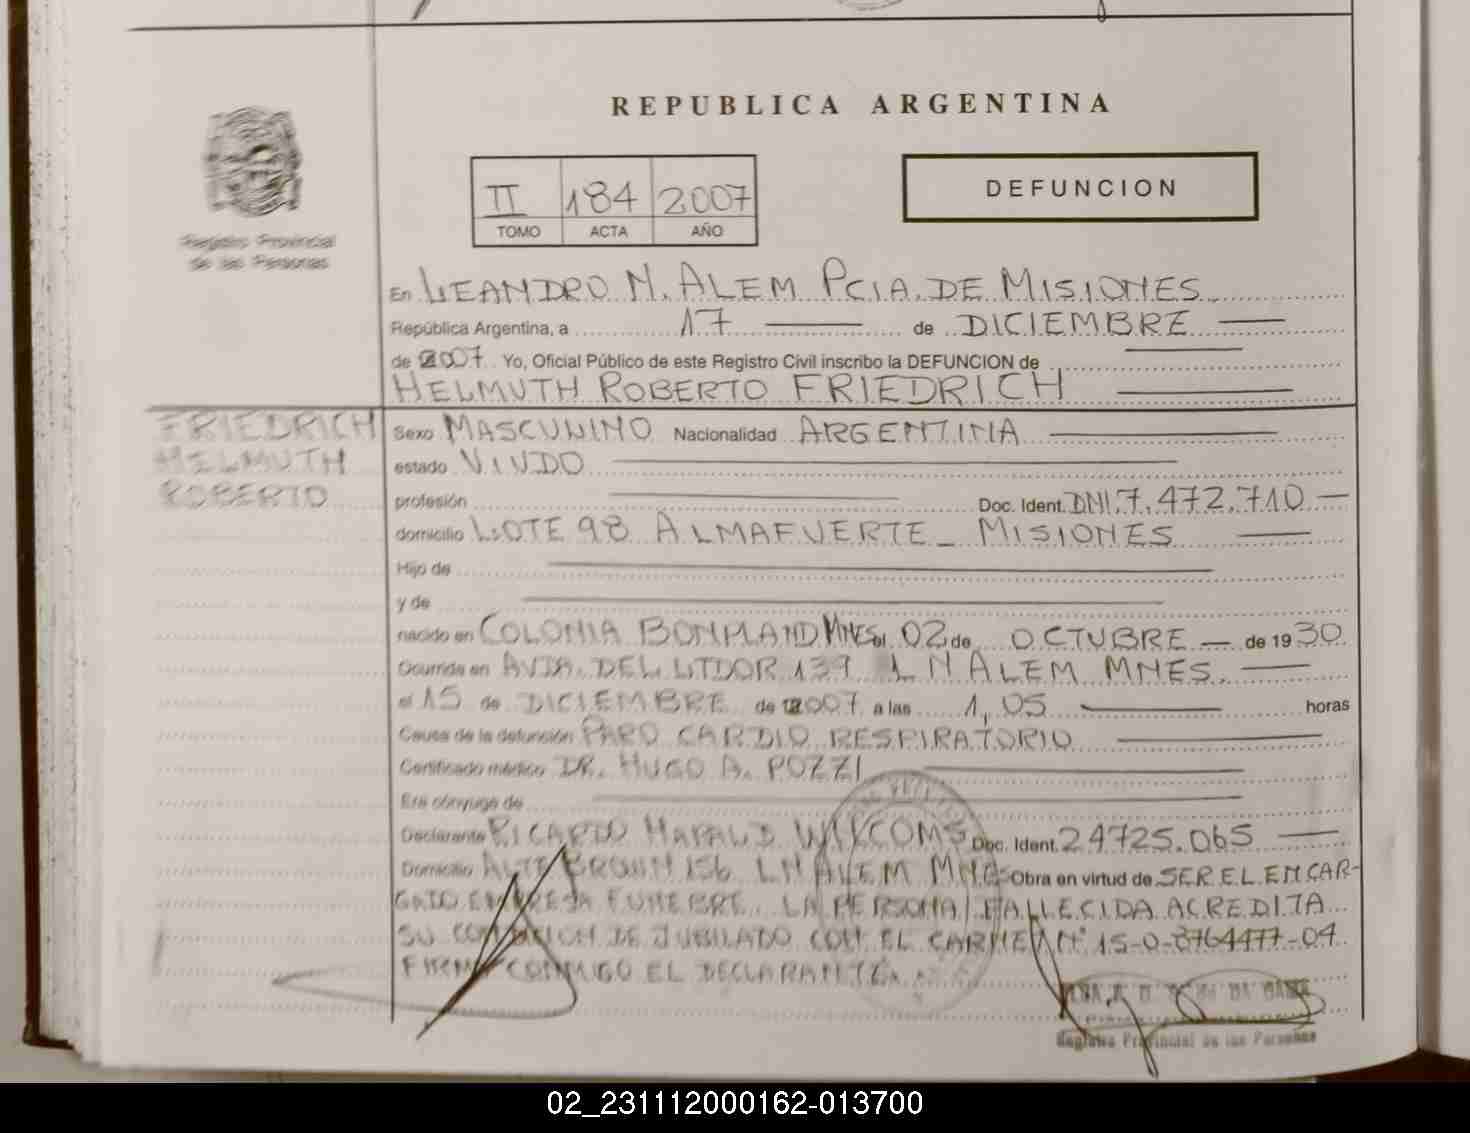 REPUBLICA ARGENTINA
II 184 2007
TOMO ACTA AÑO
DEFUNCION
Registro Provincial
de las Personas
En LEANDRO N. ALEM PCIA. DE MISIONES
República Argentina, a 17 de DICIEMBRE
de 2007 Yo, Oficial Público de este Registro Civil inscribo la DEFUNCION de
HELMUTH ROBERTO FRIEDRICH
FRIEDRICH
HELMUTH
ROBERTO
Sexo MASCULINO Nacionalidad ARGENTINA
estado VIUDO
profesión Doc. Ident. DNI 7.472.710
domicilio LOTE 98 ALMAFUERTE - MISIONES
Hijo de
y de
nacido en COLONIA BONPLAND MNES el 02 de OCTUBRE de 1930
Ocurrida en AVDA. DEL LTDOR 139 L N ALEM MNES.
el 15 de DICIEMBRE de 2007 a las 1,05 horas
Causa de la defunción PARO CARDIO RESPIRATORIO
Certificado médico DR. HUGO A. POZZI
Era cónyuge de
Declarante RICARDO Doc. Ident. 24725.065
Domicilio ALTE BROWN 156 L N ALEM MNES Obra en virtud de SER EL ENCAR-
GADO EMPRESA FUNEBRE. LA PERSONA FALLECIDA ACREDITA
SU CONDICION DE JUBILADO CON EL CARNET N° 15-0-8764477-04
FIRMA CONMIGO EL DECLARANTE
Registro Provincial de las Personas
02_231112000162-013700